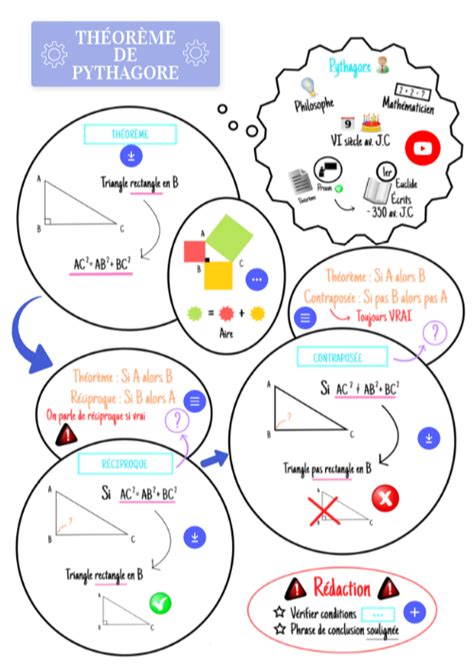 THÉORÈME
DE
PYTHAGORE
Pythagore
Philosophe
Mathématicien
9
VI siècle av. J.C
1er
Théorème
Preuve
Euclide
Écrits
- 350 av. J.C
THÉORÈME
Triangle rectangle en B
A
B
C
AC² = AB² + BC²
= +
Aire
Théorème : Si A alors B
Contraposée : Si pas B alors pas A
Toujours VRAI
?
Théorème : Si A alors B
Réciproque : Si B alors A
On parle de réciproque si vrai
?
CONTRAPOSÉE
Si AC² ≠ AB² + BC²
A
?
B
C
Triangle pas rectangle en B
A
B
C
RÉCIPROQUE
Si AC² = AB² + BC²
A
?
B
C
Triangle rectangle en B
A
B
C
Rédaction
Vérifier conditions ...
Phrase de conclusion soulignée